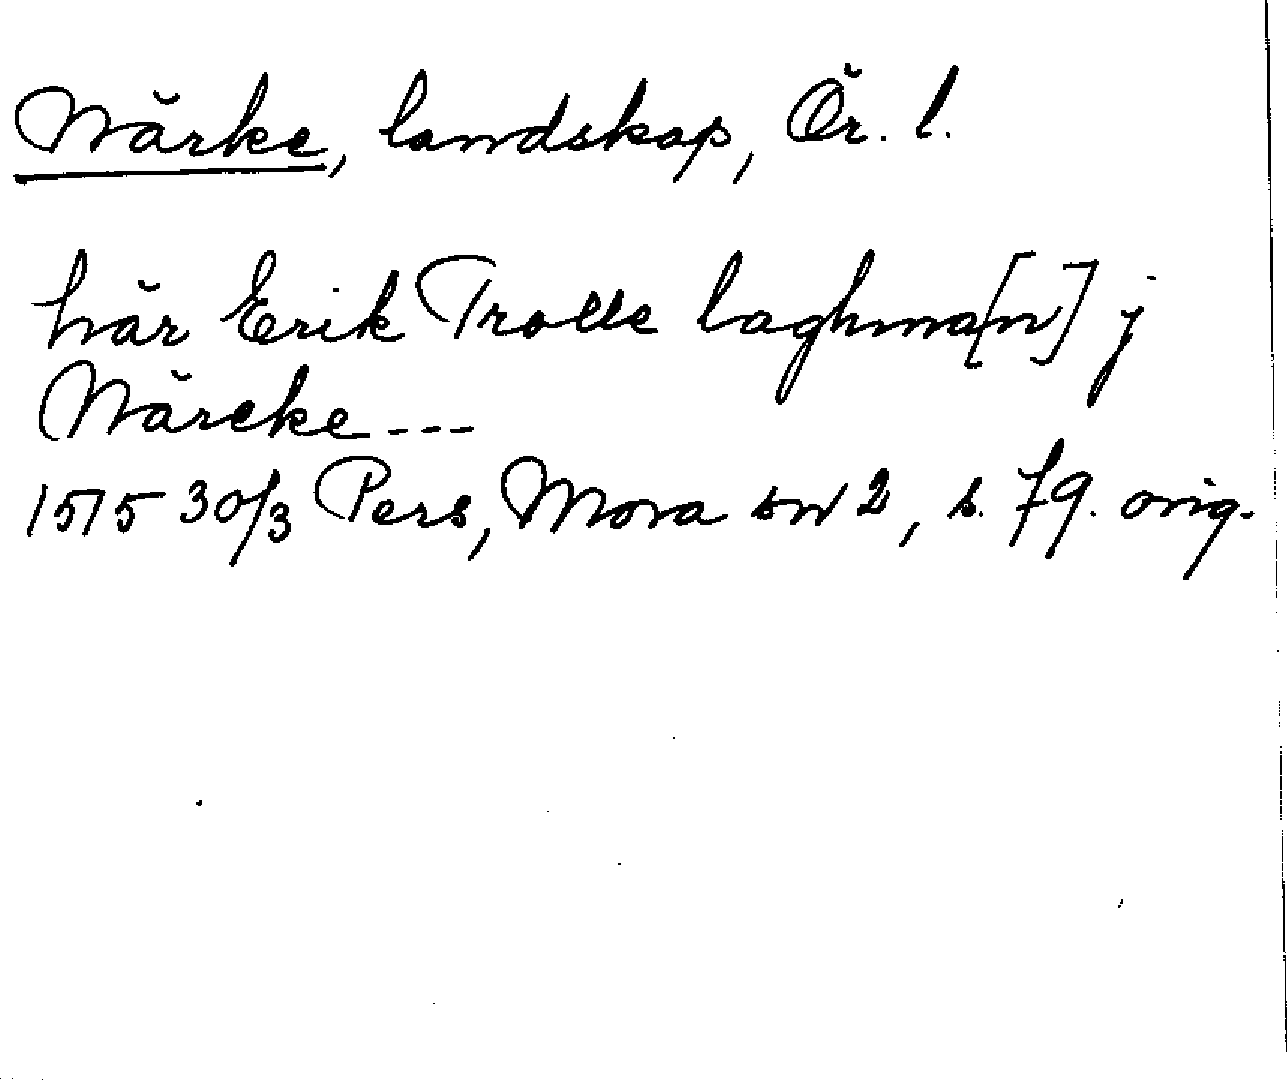 Närke, landskap, Ör. l.
här Erik Trolle laghma[n] j
Närcke ---
1515 30/3 Pers, Mora sn 2, s. 79. orig.